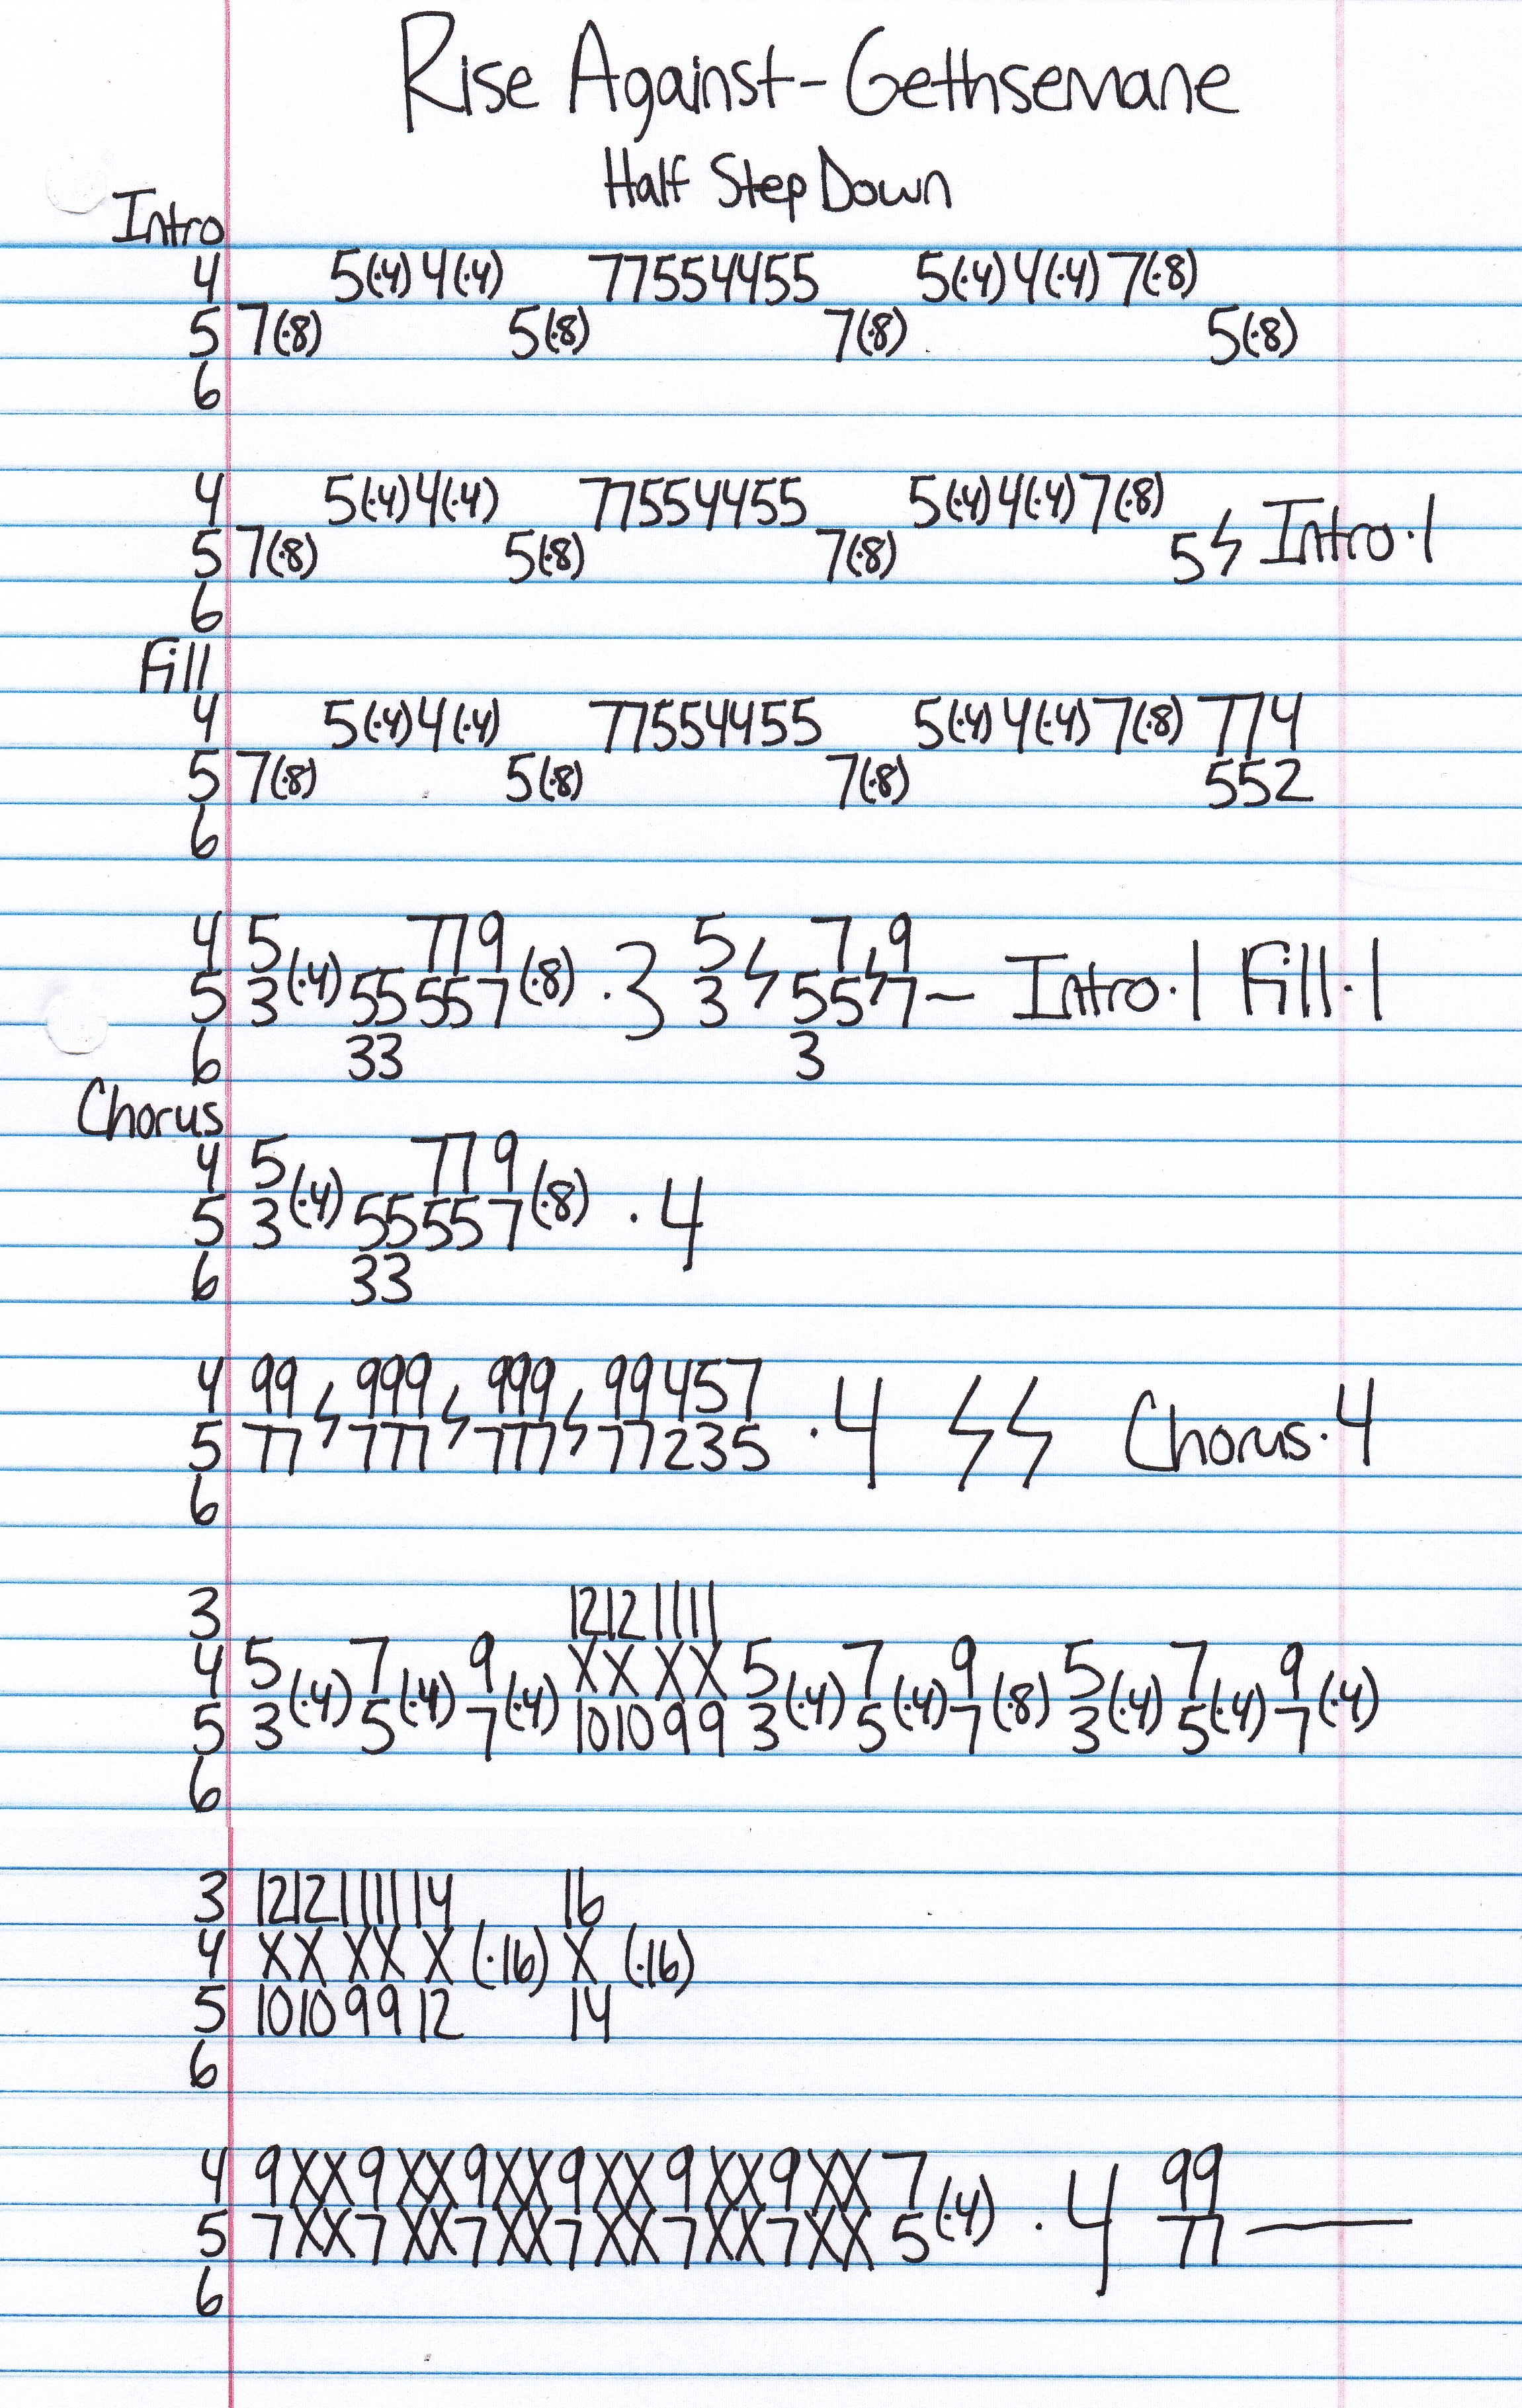 Rise Against - Gethsemane
Half Step Down
Intro
4 5(·4) 4(·4) 77554455 5(·4) 4(·4) 7(·8)
5 7(·8) 5(·8) 7(·8) 5(·8)
6
4 5(·4) 4(·4) 77554455 5(·4) 4(·4) 7(·8)
5 7(·8) 5(·8) 7(·8) 5 Intro·1
6
Fill
4 5(·4) 4(·4) 77554455 5(·4) 4(·4) 7(·8) 774
5 7(·8) 5(·8) 7(·8) 552
6
4 5 779 5 7 9
5 3 (·4) 55557 (·8) ·3 3 55 7 — Intro·1 Fill·1
6 33 3
Chorus
4 5 779
5 3 (·4) 55557 (·8) ·4
6 33
4 99 999 999 99457
5 77 777 777 77235 ·4 Chorus·4
6
3 12121111
4 5 7 9 XXXX 5 7 9 5 7 9
5 3 (·4) 5 (·4) 7 (·4) 101099 3 (·4) 5 (·4) 7 (·8) 3 (·4) 5 (·4) 7 (·4)
6
3 1212111114 16
4 XX XX X (·16) X (·16)
5 10109912 14
6
4 9XX9XX9XX9XX9XX9XX 7 99
5 7XX7XX7XX7XX7XX7XX 5 (·4) ·4 77 —
6